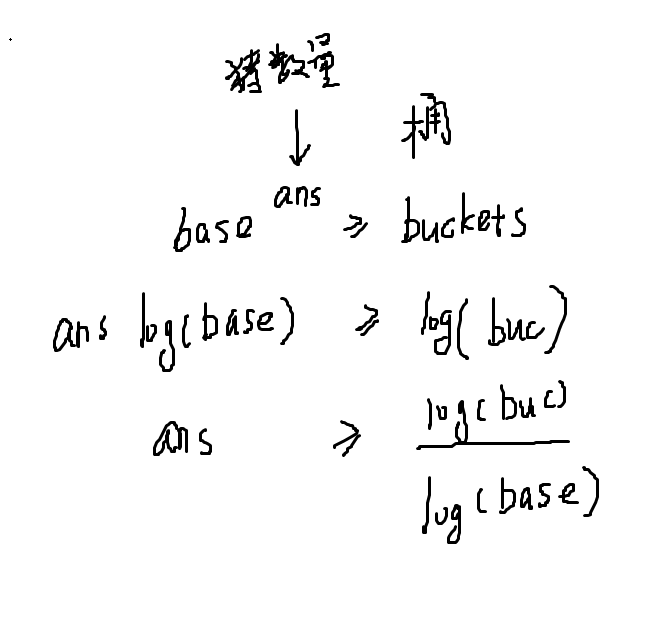 猪数量
↓ 桶
base^ans ≥ buckets
ans log(base) ≥ log(buc)
ans ≥ log(buc) / log(base)